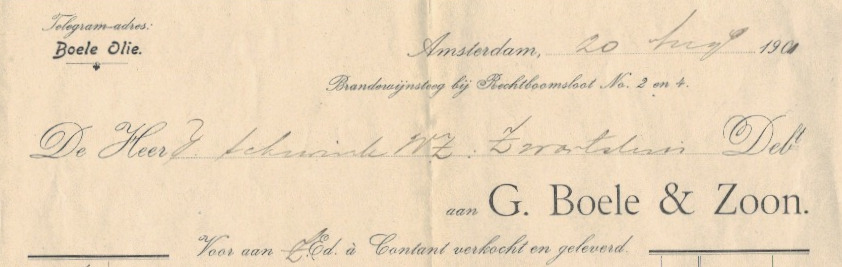 Telegram-adres:
Boele Olie.
Amsterdam, 20 Aug 1901
Branderijnsteeg bij Rechtboomsloot No. 2 en 4.
De Heer J Schurink WZ: Zwartsluis Debt
aan G. Boele & Zoon.
Voor aan ZEd. à Contant verkocht en geleverd.